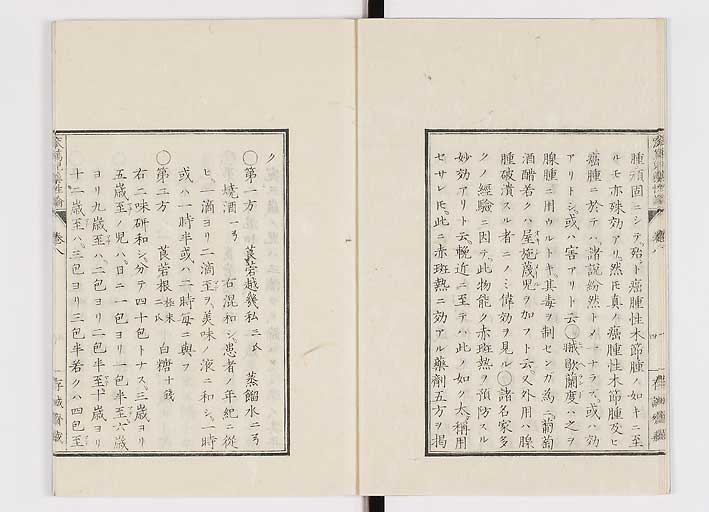 腫頑固ニシテ殆ト癌腫性木節腫ノ如キニ至
ルモ亦殊効アリ然𪜈真ノ癌腫性木節腫及ヒ
癌腫ニ於テハ諸説紛然トノ一ナラス或ハ効
アリトシ或ハ害アリト云〇
蘭度ハ之ヲ
腺腫ニ用ウルトキ其毒ヲ制センガ為ニ葡萄
酒醋若クハ屋施蔑児ヲ加フト云又外用ハ腺
腫破潰スル者ニノミ偉効ヲ見ル〇諸名家多
クノ経験ニ因テ此物能ク赤斑熱ヲ預防スル
妙効アリト云輓近ニ至テハ此ノ如ク大ニ称用
セサレ𪜈此ニ赤斑熱ニ効アル薬剤五方ヲ掲
ク
〇第一方 莨菪越幾私三氏 蒸餾水二
焼酒一 右混和シ患者ノ年紀ニ従
ヒ一滴ヨリ二滴至ヲ美味ノ液ニ和シ一時
或ハ一時半或ハ二時毎ニ與フ
〇第二方 莨菪根極末二氏 白糖十銭
右二味研和シ分テ四十包トナス三歳ヨリ
五歳至ノ児ハ日ニ一包ヨリ一包半至六歳
ヨリ九歳至ハ二包ヨリ二包半至十歳ヨリ
十二歳至ハ三包ヨリ三包半若クハ四包至
巻八